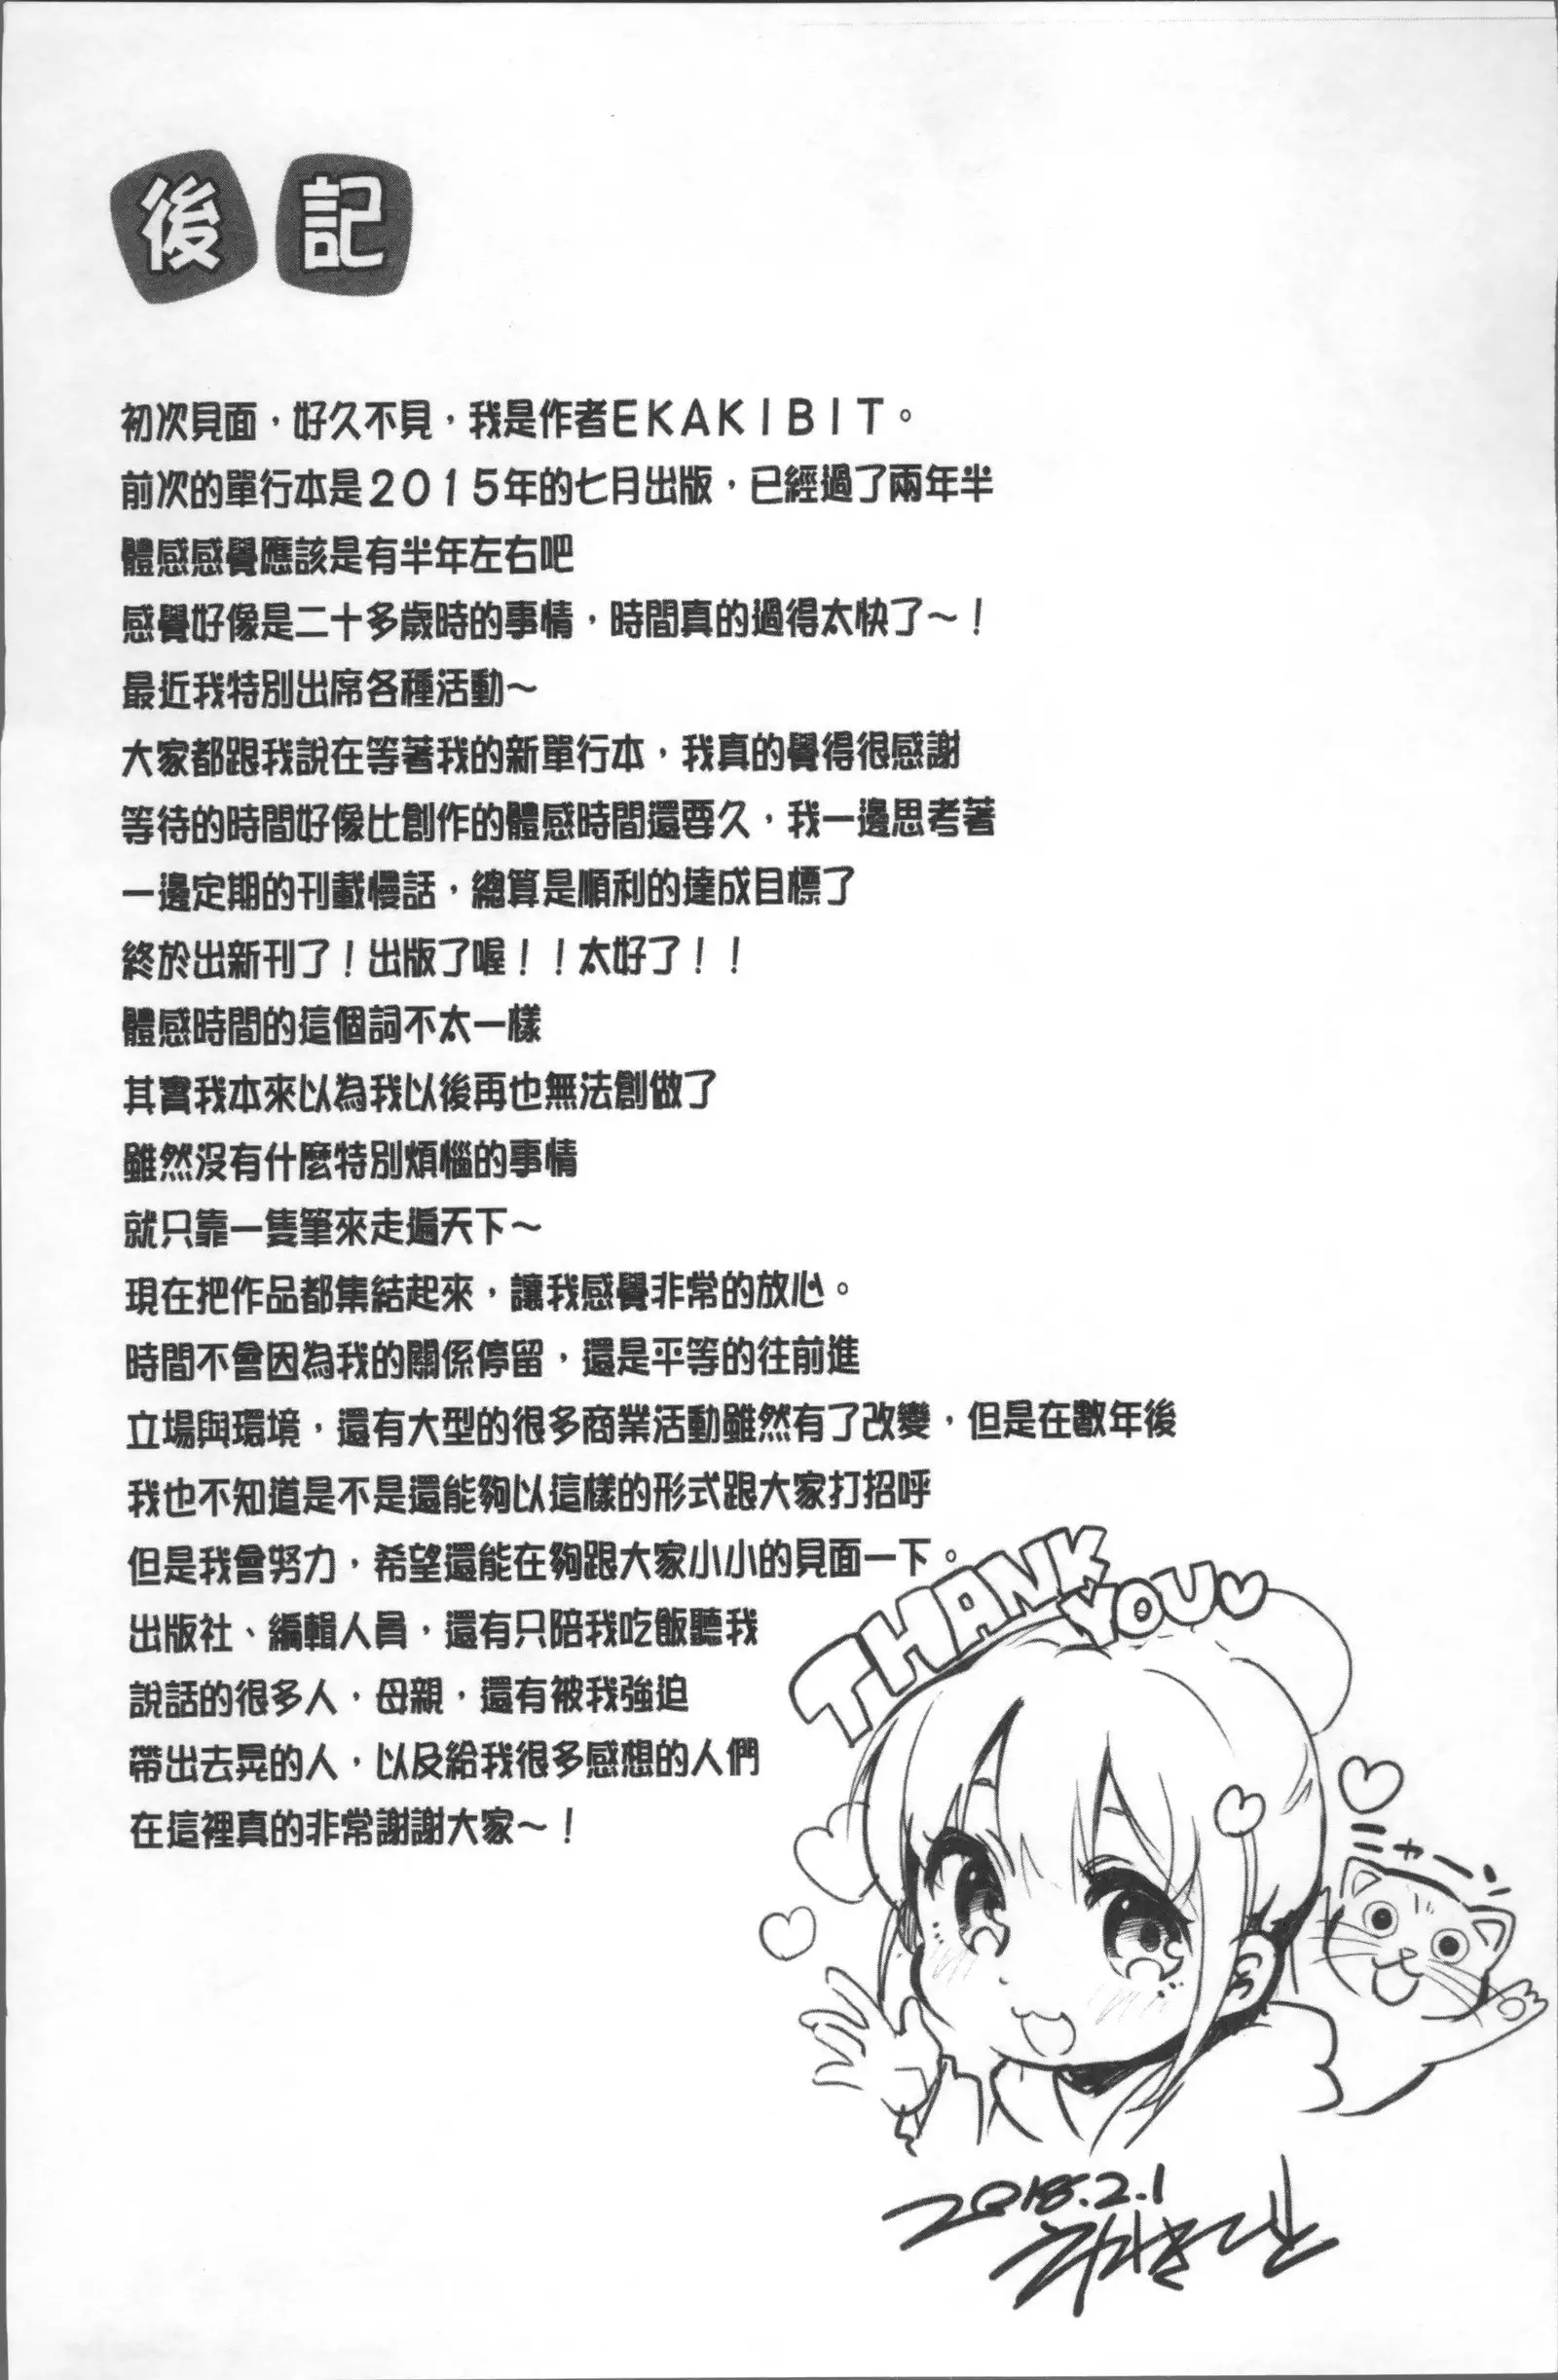 後記
初次見面，好久不見，我是作者ＥＫＡＫＩＢＩＴ。
前次的單行本是２０１５年的七月出版，已經過了兩年半
體感感覺應該是有半年左右吧
感覺好像是二十多歲時的事情，時間真的過得太快了～！
最近我特別出席各種活動～
大家都跟我說在等著我的新單行本，我真的覺得很感謝
等待的時間好像比創作的體感時間還要久，我一邊思考著
一邊定期的刊載慢話，總算是順利的達成目標了
終於出新刊了！出版了喔！！太好了！！
體感時間的這個詞不太一樣
其實我本來以為我以後再也無法創做了
雖然沒有什麼特別煩惱的事情
就只靠一隻筆來走遍天下～
現在把作品都集結起來，讓我感覺非常的放心。
時間不會因為我的關係停留，還是平等的往前進
立場與環境，還有大型的很多商業活動雖然有了改變，但是在數年後
我也不知道是不是還能夠以這樣的形式跟大家打招呼
但是我會努力，希望還能在夠跟大家小小的見面一下。
出版社、編輯人員，還有只陪我吃飯聽我
說話的很多人，母親，還有被我強迫
帶出去晃的人，以及給我很多感想的人們
在這裡真的非常謝謝大家～！
THANK
YOU♡
ニャーン
2018.2.1